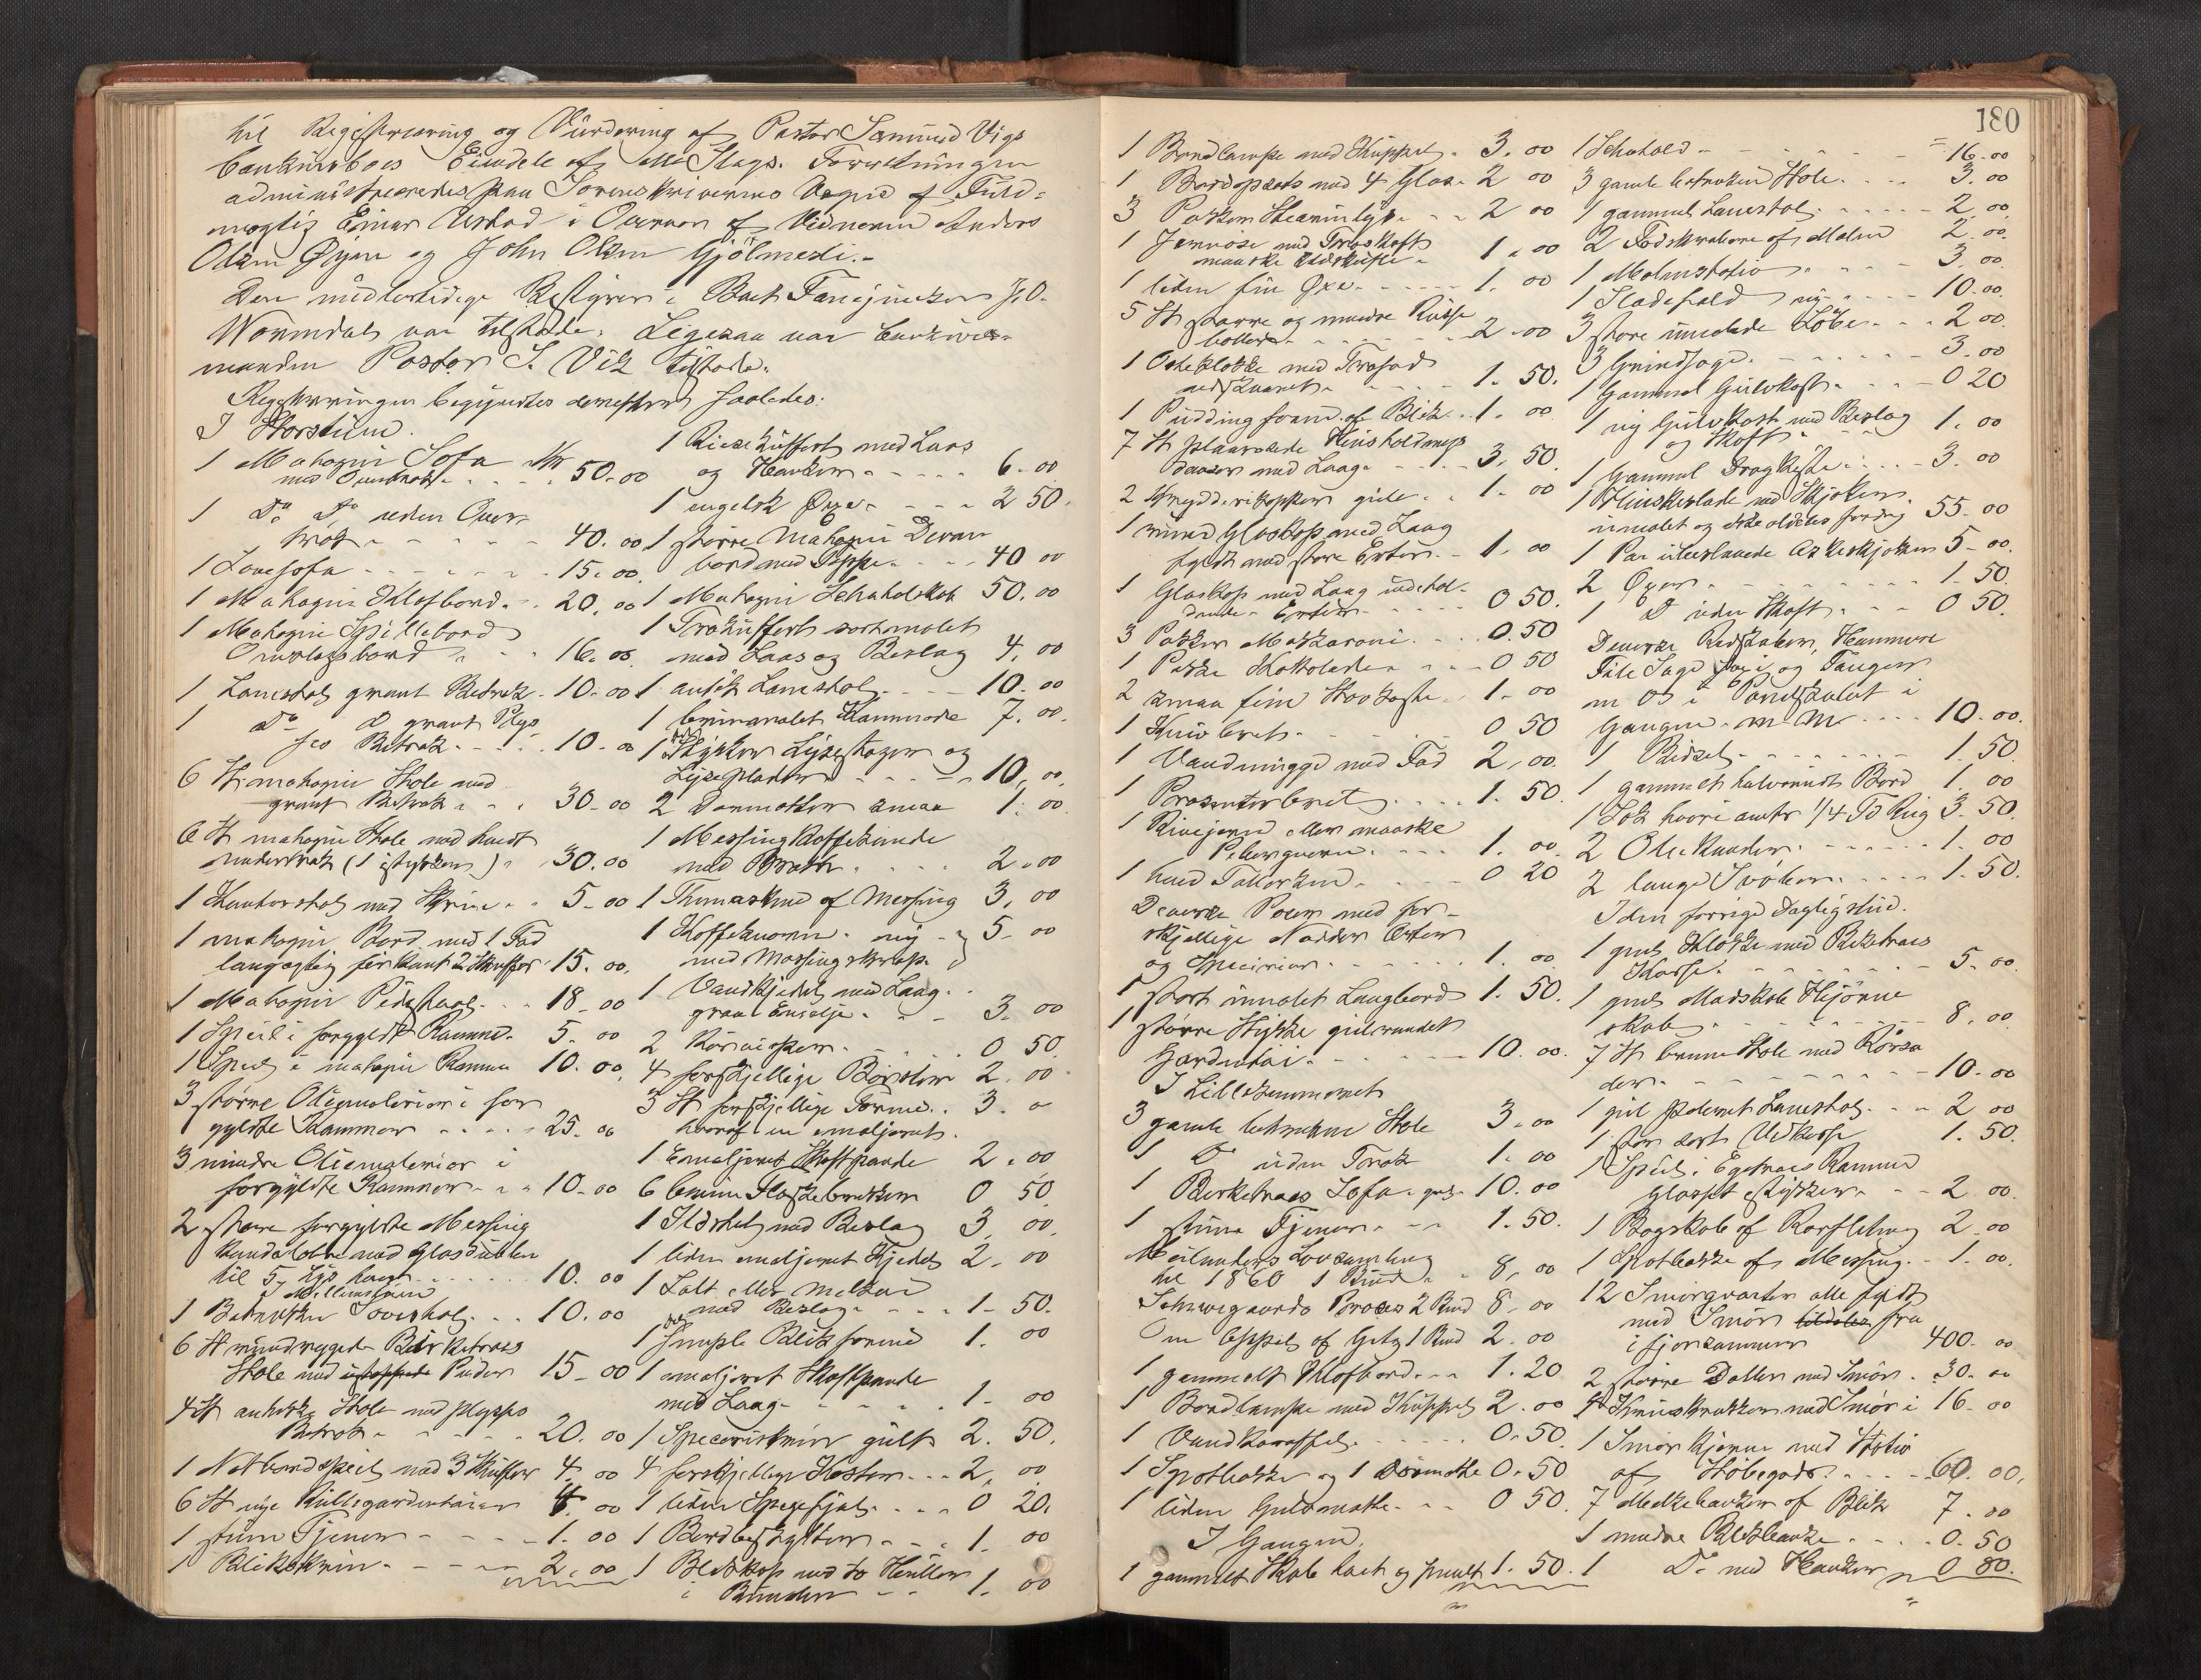 til Registrering og Vurdering af Pastor Samuel Vigs
Concursboes Eiendele af alle Slags. Forretningen
administreredes paa Sorenskriverens Vegne af Fuld-
mægtig Einar Ustad i Overvær af Vidnerne Anders
Olsen Øyen og John Olsen Gjölmesli.-
Den midlertidige Bestyrer i Boet Fanejunker J. O.
Wormdal var tilstede. Ligesaa var
manden Pastor S. Vik tilstede.
Registreringen begyndtes dernæst saaledes:
I Storstuen.
1 Mahogni Sofa Kr
med Overtræk 50.00
1 Do Do uden Over-
træk 40.00
1 Lovesofa 15.00
1 Mahogni Klafbord 20.00
1 Mahogni Spillebord
Omslagsbord 16.00
1 Lænestol grønt Betræk 10.00
1 Do D grønt Plys
Betræk 10.00
6 St mahogni Stole med
grønt Betræk 30.00
6 St mahogni Stole med hvidt
undertræk (1 istykker) 30.00
1 Kontorstol med Skrue 5.00
1 mahogni Bord med 1 Fod
langagtig firkant 2 Skuffer 15.00
1 Mahogni Pidestaal 18.00
1 Speil i forgyldt Ramme 5.00
1 Speil i mahogni Ramme 10.00
3 større Oliemalerier i for
gyldte Rammer 25.00
3 mindre Oliemalerier i
forgyldte Rammer 10.00
2 store forgyldte Messing
med Glasdubber
til 5 Lys hver 10.00
I Mellemstuen
1 Betrukken Sovestol 10.00
6 St rundryggede Birketræs
Stole med Puder 15.00
4 St antikke Stole med plyss
Betræk 20.00
1 Natbordspeil med 3 Skuffer 4.00
6 St nye Rullegardintøier 4.00
1 stum Tjener 1.00
1 Blikskrin 2.00
1 Reisekuffert med Laas
og Hanker 6.00
1 engelsk Øxe 2 50
1 større Mahogni Divan
bord med Teppe 40 00
1 Mahogni Schatolskab 50.00
1 Trækuffert sortmalet
med Laas og Beslag 4.00
1 antik Lænestol 10.00
1 brunmalet Kommode 7.00
1 Del Stykker Lysestager og
Lyseplader 10.00
2 Dørmatter smaa 1.00
1 Messing Kaffekande
med Bræt 2.00
1 Themaskine af Messing 3.00
1 Kaffekværn ny 5.00
med Messingskrap
1 Vandkjedel med Laag
graa Emalje 3.00
2 Kurvisker 0 50
4 forskjellige Børster 2.00
3 St forskjellige Forme 3.
hvoraf en emaljeret.
1 Emaljeret Skaftpande 2.00
6 brune Flaskebrikker 0 50
1 Ildstol med Beslag 3.00
1 liden emaljeret Kjedel 2.00
1 Salt eller
med Beslag 1.50
1 simple Blikforme 1.00
1 emaljeret Skaftpande
med Laag 1.00
1 Speceriskrin gult 2.50
4 forskjellige Koster 2.00
1 liden Spegefjæl 0 20
1 Bordbeskytter 1.00
1 Blikkop med to Huller
i Bunden 1.00
180
1 Bordlampe med Kuppel 3.00
1 Bordopsats med 4 Glas 2 00
3 Pakker Stearinlys 2 00
1 Jernøse med Træskaft
maaske Ildskuffe 1.00
1 liden fin Øxe 1.00
5 St større og mindre Risse
boller 2.00
1 Osteklokke med Træfad
udskaaret 1.50
1 Puddingform af Blik 1.00
7 St Husholdnings
daaser med Laag 3.50
2 Krydderikopper gule 1.00
1 rund Glaskop med Laag
fyldt med store Erter 1.00
1 Glaskop med Laag indehol-
dende Erter 0 50
3 Pakker Makkaroni 0.50
1 Pakke Chokolade 0 50
2 smaa fine Støvkoste 1.00
1 Knivbræt 0 50
1 Vandmugge med Fad 2.00
1 Presenterbræt 1.50
1 Rivejern eller maaske
Peberkværn 1.00
1 hvid Tallerken 0 20
Diverse Poser med for-
skjellige Nødder Erter
og Specerier 1.00
1 stort umalet Langbord 1.50
1 større Stykke gulrandet
Gardintøi 10.00
I Lillekammeret
3 gamle betrukne Stole 3.00
1 Do uden Træk 1.00
1 Birketræs Sofa gul 10.00
1 stum Tjener 1.50
Meilænders Lovsamling
til 1860 1 Bind 8.00
Schweigaards Proces 2 Bind 8.00
Om Appel af Getz 1 Bind 2.00
1 gammelt Klafbord 1.20
1 Bordlampe med Kuppel 2.00
1 Vandkaraffel 0.50
1 Spotbakke og 1 Dørmatte 0.50
1 liden Gulvmatte 0 50
I Gangen
1 gammelt Skab 1.50
1 Schatold 16.00
3 gamle betrukne Stole 3.00
1 gammel Lænestol 2.00
2 Fodskrabere af Malm 2.00
1 Malmstativ 3.00
1 Slædefæld ny 10.00
3 store umalede Löbe 2 00
3 Grindsage 3.00
1 Gammel Gulvkost 0 20
1 ny Gulvkost med Beslag
og Skaft 1.00
1 Gammel Dragkiste 3.00
1 med Skjøker
umalet og ikke aldeles færdig 55.00
1 Par ubeslaaede Askeskjøker 5.00
2 Øxer 1.50
1 D uden Skaft 0 50
Diverse Redskaber, Hammere
File Sage og Tænger
m m i Panelskabet i
Gangen m M 10.00
1 Bidsel 1.50
1 gammelt halvrundt Bord 1.00
1 Sæk hvori omtr 1/4 Td Rug 3.50
2 Oliekander 1.00
2 lange Svøber 1.50
I den forrige Dagligstue.
1 gul Klokke med Birketræs
Kasse 5.00
1 gul Madskab Hjörne
skab 8.00
7 St brune Stole med Rørsæ
der 10.00
1 gul poleret Lænestol 2.00
1 stor sort Vedkasse 1.50
1 Speil i Egetræs Ramme
Glasset istykker 2 00
1 Bogskab af Rørfletning 2.00
1 Spotbakke af Messing 1.00
12 Smørqvarter alle fyldt
med Smør fra
ifjorsommer 400.00
2 større Daller med Smør 30.
4 Kruskrukker med Smør i 16.00
1 Smør Kjerne med Stativ
af Støbegods 60.00
7 Melkebunker af Blik 7.00
1 mindre Blikbunke 0.50
1 Do med Hanker 0 80